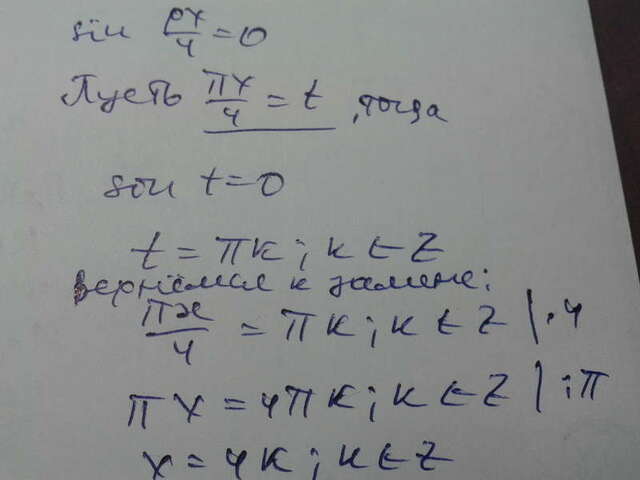 sin px/4 = 0
Пусть πx/4 = t, тогда
sin t = 0
t = πк; к ∈ Z
вернёмся к замене:
πx/4 = πк; к ∈ Z |·4
πx = 4πк; к ∈ Z |:π
x = 4к; к ∈ Z